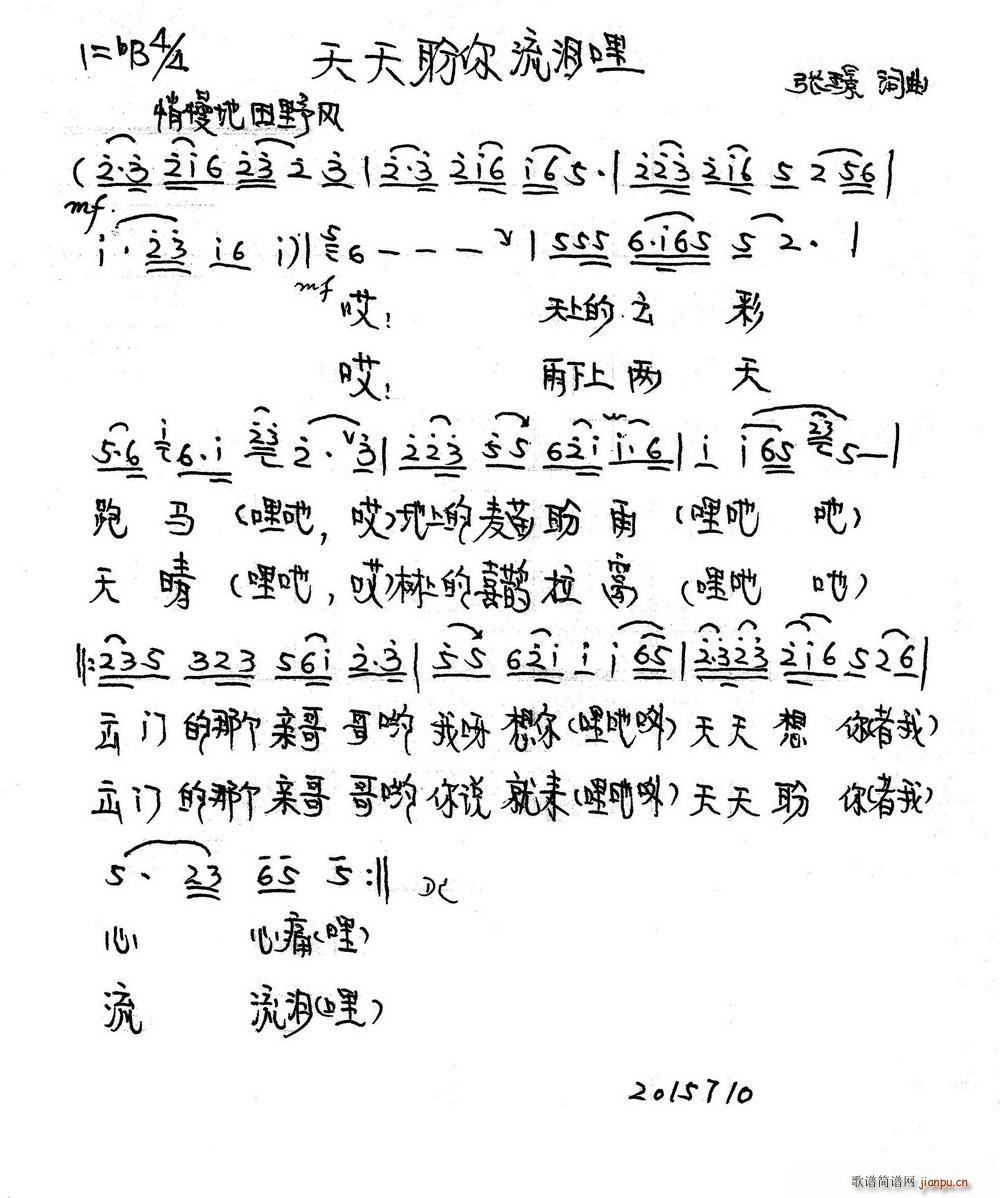 1=bB 4/4 天天盼你流泪哩
张璟 词曲
悄慢地田野风
(2̇·3̇ 2̇i6 2̇3̇ 2̇ 3̇|2̇·3̇ 2̇i6 i65·|2̇2̇3̇ 2̇i6 5 2 56|
mf.
i·2̇3̇ i6 i)|5 6 - - - ∨|555 6·i65 5 2·|
mf
哎! 天上的云 彩
哎! 雨下上两 天
5·6 i 6·i 2̇3̇ 2̇·∨3̇|2̇2̇3̇ 5̇5 62̇i i·6|i i65 2̇3̇ 5—|
跑马(哩吔,哎)地上的麦苗盼雨(哩吔 吔)
天晴(哩吔,哎)树上的喜鹊拉窝(哩吔 吔)
‖:235 323 56i 2̇·3̇|5̇5 62̇i i i65|2̇·3̇2̇3̇ 2̇i6 526|
出门的那个亲哥哥哟我呀想你(哩吔哟)天天想你(者我)
出门的那个亲哥哥哟你说就来(哩吔哟)天天盼你(者我)
5· 23 65 5:‖ DC
心 心痛(哩)
流 流泪(哩)
2015710
歌谱简谱网 jianpu.cn